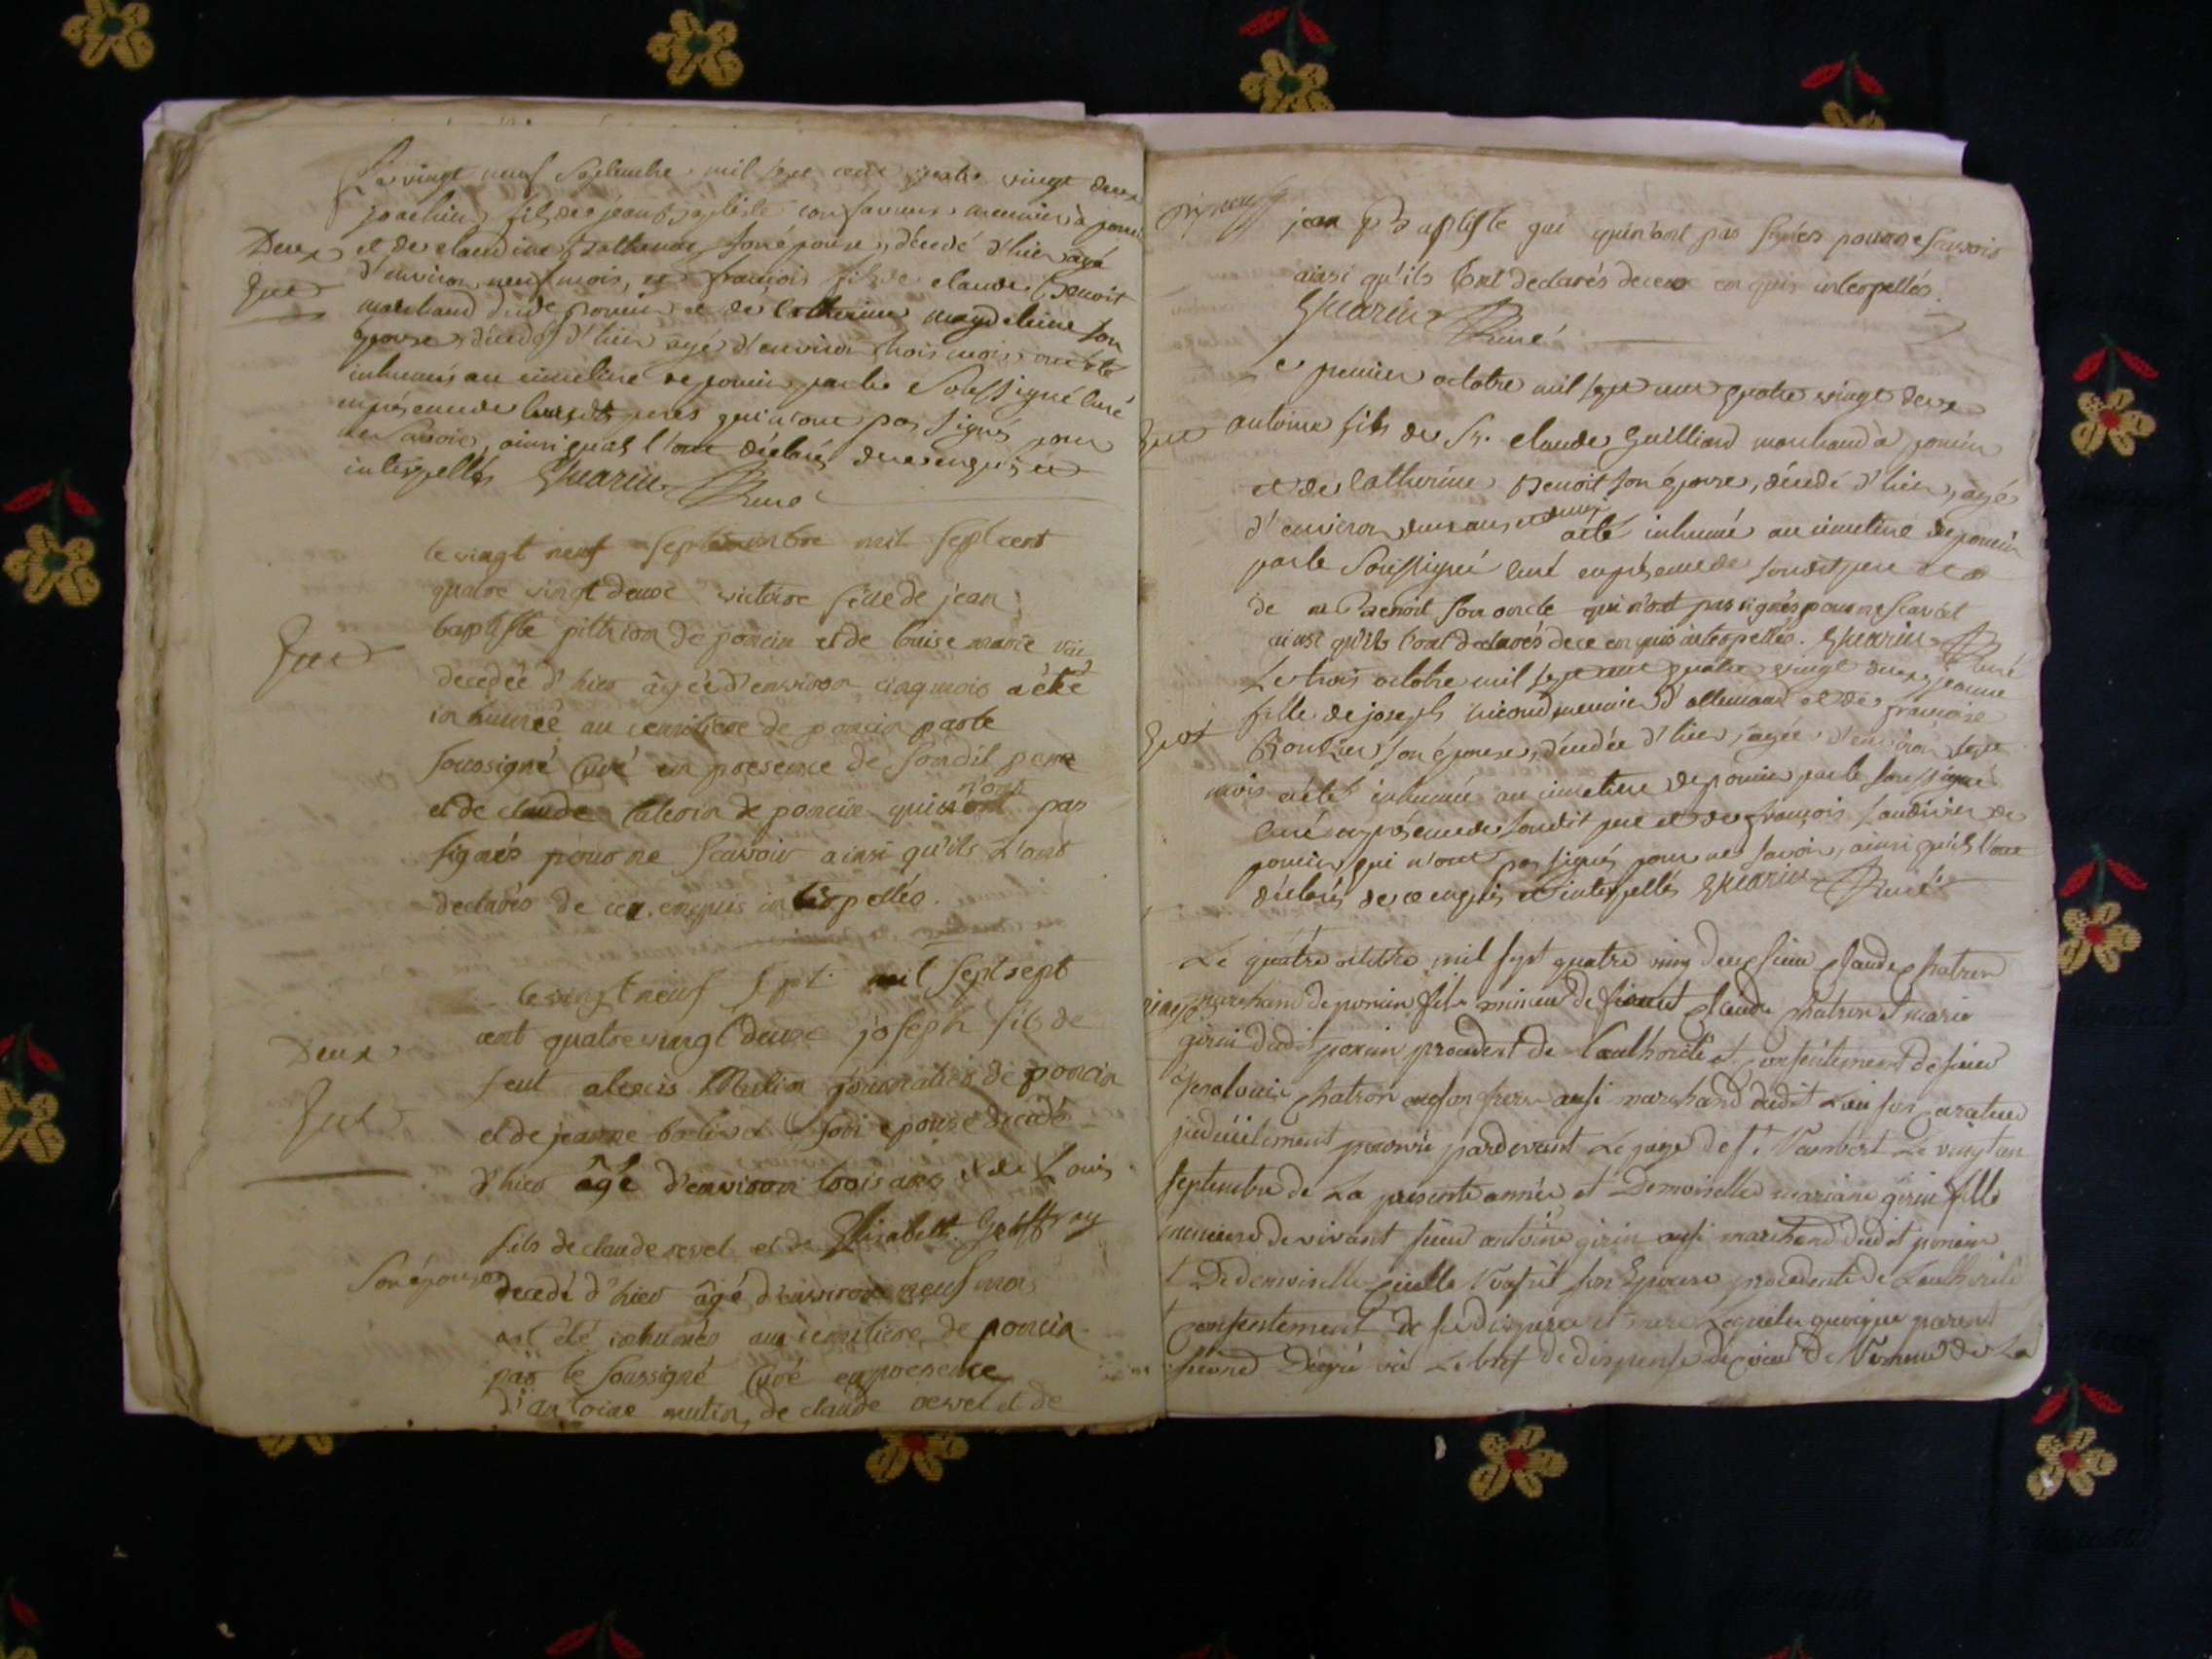 Le vingt neuf Septembre mil sept cent quatre vingt deux
joachim fils de jean baptiste meunier à poncin
Deux et de claudine son épouse, décédé d'hier agé
d'environ neuf mois, et françois fils de claude Benoit
marchand dudt poncin et de Catherine magdeleine son
épouse, décédé d'hier agé d'environ trois mois ont été
inhumés au cimetiere de poncin par le Soussigné Curé
en présence de leurs dts peres qui n'ont pas signés pour
ne Savoir, ainsi qu'ils l'ont déclarés de ce enquis et
interpellés Guarin Curé
le vingt neuf septembre mil sept cent
quatre vingt deux victoire fille de jean
baptiste pithion de poncin et de louise marie
decedée d'hier âgée d'environ cinq mois a été
inhumeé au cemitiere de poncin par le
soussigné Curé en presence de sondit pere
et de claude de poncin qui n'ont pas
signés pour ne scavoir ainsi qu'ils l'ont
declarés de ce enquis interpellés.
le vingt neuf sept. mil sept sept
Deux cent quatre vingt deux joseph fils de
feut alexis Mutin de poncin
et de jeanne son epouse decedé
d'hier âgé d'environ trois ans et de Louis
fils de claude revel et de Elisabeth Geoffray
son épouse decedé d'hier âgé d'environ neuf mois
ont été inhumés au cemitiere de poncin
par le soussigné Curé en presence
d'antoine mutin, de claude revel et de
jean Baptiste qui n'ont pas signés pour ne scavoir
ainsi qu'ils l'ont declarés de ce enquis interpellés.
Guarin Curé
Le premier octobre mil sept cent quatre vingt deux
antoine fils de Sr. claude Guilliard marchand à poncin
et de Catherine Benoit son épouse, décédé d'hier, agé
d'environ deux ans et demi a été inhumé au cimetiere de poncin
par le Soussigné Curé en présence de son dit pere et
de Benoit son oncle qui n'ont pas signés pour ne scavoir
ainsi qu'ils l'ont declarés de ce enquis interpellés. Guarin Curé
Le trois octobre mil sept cent quatre vingt deux jeanne
fille de joseph meunier d'allemand et de françoise
son épouse, décédée d'hier, agée d'environ sept
mois a été inhumée au cimetiere de poncin par le soussigné
Curé en présence de son dit pere et de françois de
poncin, qui n'ont pas signés pour ne savoir, ainsi qu'ils l'ont
déclarés de ce enquis et interpellés Guarin Curé
Le quatre octobre mil sept quatre ving deux sieur Claude Chatron
marchand de poncin fils mineur de Claude Chatron et marie
girin dudit poncin procedent de l'authorité et consentement de sieur
Chatron son frere aussi marchand dudit Lieu son curateur
pardevant Le juge de St. Rambert Le vingt
septembre de La presente année et Demoiselle mariane girin fille
mineure de vivant sieur antoine girin aussi marchand dudit poncin
et De demoiselle son Epouse procedente de L'authorité
et consentement de sesdis pere et mere Lesquels quoique parent
au second Degré vû Le bref de dispense de La